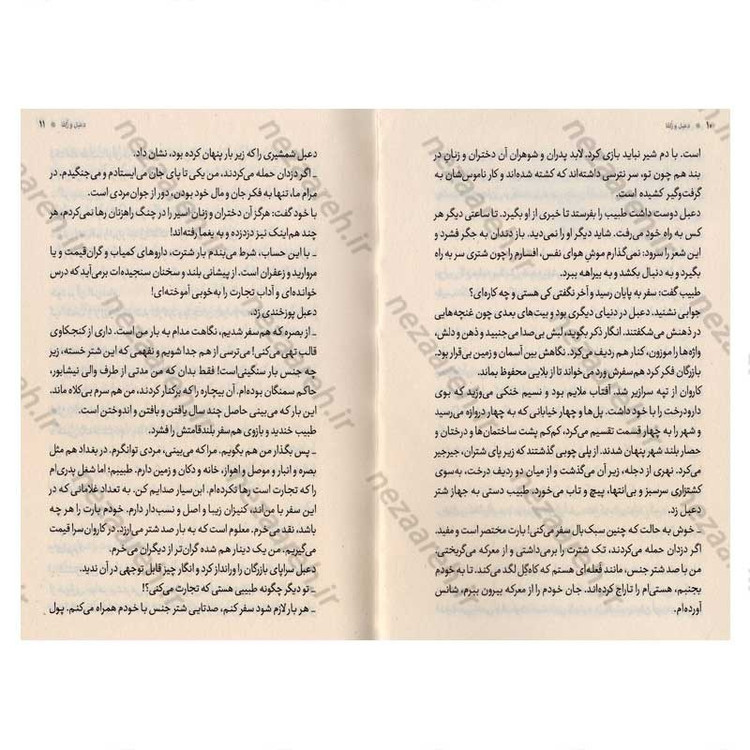 ۱۰ * دعبل و زلفا
است. با دم شیر نباید بازی کرد. لابد پدران و شوهران آن دختران و زنانِ در
بند هم چون تو، سر نترسی داشته‌اند که کشته شده‌اند و کار ناموس‌شان به
گرفت‌وگیر کشیده است.
دعبل دوست داشت طبیب را بفرستد تا خبری از او بگیرد. تا ساعتی دیگر هر
کس به راه خود می‌رفت. شاید دیگر او را نمی‌دید. باز دندان به جگر فشرد و
این شعر را سرود: نمی‌گذارم موشِ هوای نفس، افسارم را چون شتری سر به راه
بگیرد و به دنبال بکشد و به بیراهه ببرد.
طبیب گفت: سفر به پایان رسید و آخر نگفتی کی هستی و چه کاره‌ای؟
جوابی نشنید. دعبل در دنیای دیگری بود و بیت‌های بعدی چون غنچه‌هایی
در ذهنش می‌شکفتند. انگار ذکر بگوید، لبش بی‌صدا می‌جنبید و ذهن و دلش،
واژه‌ها را موزون، کنار هم ردیف می‌کرد. نگاهش بین آسمان و زمین بی‌قرار بود.
بازرگان فکر کرد هم‌سفرش ورد می‌خواند تا از بلایی محفوظ بماند.
کاروان از تپه سرازیر شد. آفتاب ملایم بود و نسیم خنکی می‌وزید که بوی
دارودرخت را با خود داشت. پل‌ها و چهار خیابانی که به چهار دروازه می‌رسید
و شهر را به چهار قسمت تقسیم می‌کرد، کم‌کم پشت ساختمان‌ها و درختان و
حصار بلند شهر پنهان شدند. از پلی چوبی گذشتند که زیر پای شتران، جیرجیر
می‌کرد. نهری از دجله، زیر آن می‌گذشت و از میان دو ردیف درخت، به‌سوی
کشتزاری سرسبز و بی‌انتها، پیچ و تاب می‌خورد. طبیب دستی به جهاز شتر
دعبل زد.
ـ خوش به حالت که چنین سبک‌بال سفر می‌کنی! بارت مختصر است و مفید.
اگر دزدان حمله می‌کردند، تک شترت را برمی‌داشتی و از معرکه می‌گریختی.
من با صد شتر جنس، مانند قُعله‌ای هستم که کاه‌گِل لگد می‌کند. تا به خودم
بجنبم، هستی‌ام را تاراج کرده‌اند. جان خودم را از معرکه بیرون ببرم، شانس
آورده‌ام.
دعبل و زلفا * ۱۱
دعبل شمشیری را که زیر بار پنهان کرده بود، نشان داد.
ـ اگر دزدان حمله می‌کردند، من یکی تا پای جان می‌ایستادم و می‌جنگیدم. در
مرام ما، تنها به فکر جان و مال خود بودن، دور از جوان‌مردی است.
با خود گفت: هرگز آن دختران و زنان اسیر را در چنگ راهزنان رها نمی‌کردم، هر
چند هم‌اینک نیز دزدزده و به یغما رفته‌اند!
ـ با این حساب، شرط می‌بندم بار شترت، داروهای کمیاب و گران‌قیمت و یا
مروارید و زعفران است. از پیشانی بلند و سخنان سنجیده‌ات برمی‌آید که درس
خوانده‌ای و آداب تجارت را به‌خوبی آموخته‌ای!
دعبل پوزخندی زد.
ـ از بصره که هم‌سفر شدیم، نگاهت مدام به بار من است. داری از کنجکاوی
قالب تهی می‌کنی! می‌ترسی از هم جدا شویم و نفهمی که این شتر خسته، زیر
چه جنس بار سنگینی است! فقط بدان که من مدتی از طرف والی نیشابور،
حاکم سمنگان بوده‌ام. آن بیچاره را که برکنار کردند، من هم سرم بی‌کلاه ماند.
این بار که می‌بینی حاصل چند سال یافتن و بافتن و اندوختن است.
طبیب خندید و بازوی هم‌سفر بلندقامتش را فشرد.
ـ پس بگذار من هم بگویم. مرا که می‌بینی، مردی توانگرم. در بغداد هم مثل
بصره و انبار و موصل و اهواز، خانه و دکان و زمین دارم. طبیبم؛ اما شغل پدری‌ام
را که تجارت است رها نکرده‌ام. ابن‌سیار صدایم کن. به تعداد غلامانی که در
این سفر با من‌اند، کنیزان زیبا و اصل و نسب‌دار دارم. خودم بارت را هر چه
باشد، نقد می‌خرم. معلوم است که به بار صد شتر می‌ارزد. در کاروان‌سرا قیمت
می‌گیریم. من یک دینار هم شده گران‌تر از دیگران می‌خرم.
دعبل سراپای بازرگان را ورانداز کرد و انگار چیز قابل توجهی در آن ندید.
ـ تو دیگر چگونه طبیبی هستی که تجارت می‌کنی؟!
ـ هر بار لازم شود سفر کنم، صدتایی شتر جنس با خودم همراه می‌کنم. پول
nezaareh.ir